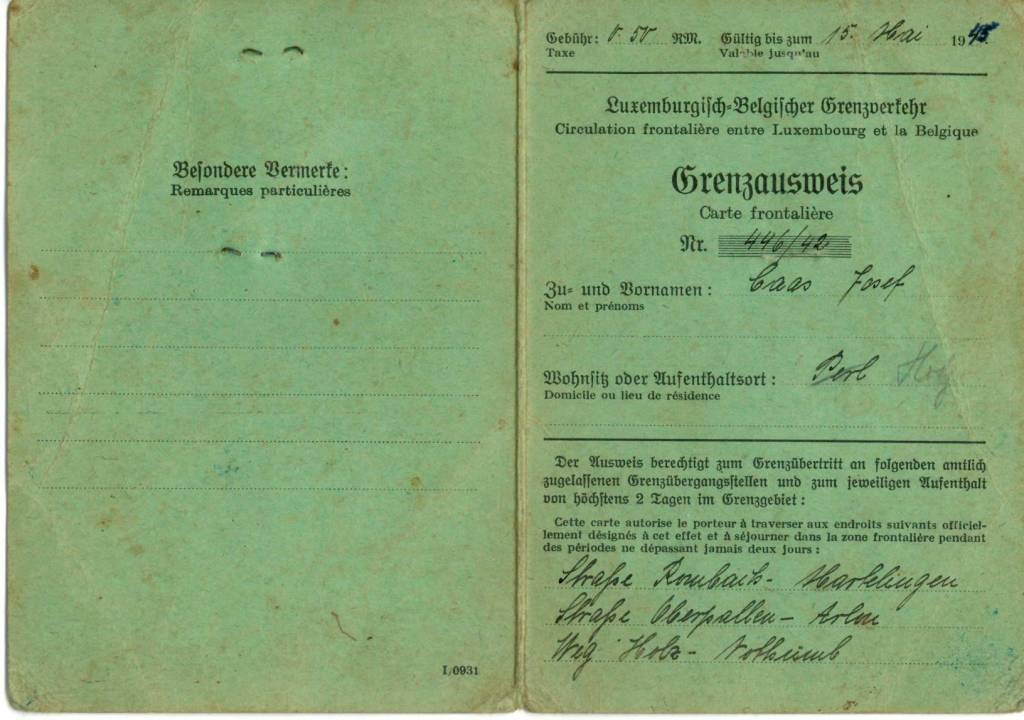 Besondere Vermerke:
Remarques particulières
I/0931
Gebühr: 0.50 RM. Gültig bis zum 15. Mai 1943.
Taxe Valable jusqu'au
Luxemburgisch-Belgischer Grenzverkehr
Circulation frontalière entre Luxembourg et la Belgique
Grenzausweis
Carte frontalière
Nr. 446/42
Zu- und Vornamen: Caas Josef
Nom et prénoms
Wohnsitz oder Aufenthaltsort: Perl
Domicile ou lieu de résidence
Der Ausweis berechtigt zum Grenzübertritt an folgenden amtlich
zugelassenen Grenzübergangsstellen und zum jeweiligen Aufenthalt
von höchstens 2 Tagen im Grenzgebiet:
Cette carte autorise le porteur à traverser aux endroits suivants officiel-
lement désignés à cet effet et à séjourner dans la zone frontalière pendant
des périodes ne dépassant jamais deux jours:
Straße Rombach- Martelingen
Straße Oberpallen- Arlon
Weg Holz-